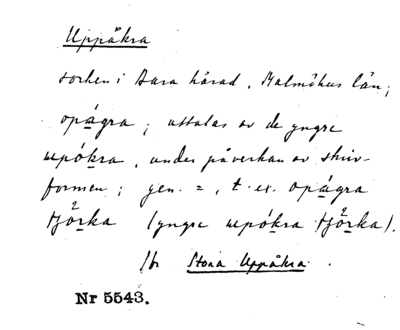 Uppåkra
socken i Bara härad, Malmöhus län;
opágra; uttalas av de yngre
upókra, under påverkan av skriv-
formen; gen. =, t. ex. opágra
tjǒrka (yngre upókra tjǒrka).
Jfr Stora Uppåkra.
Nr 5543.